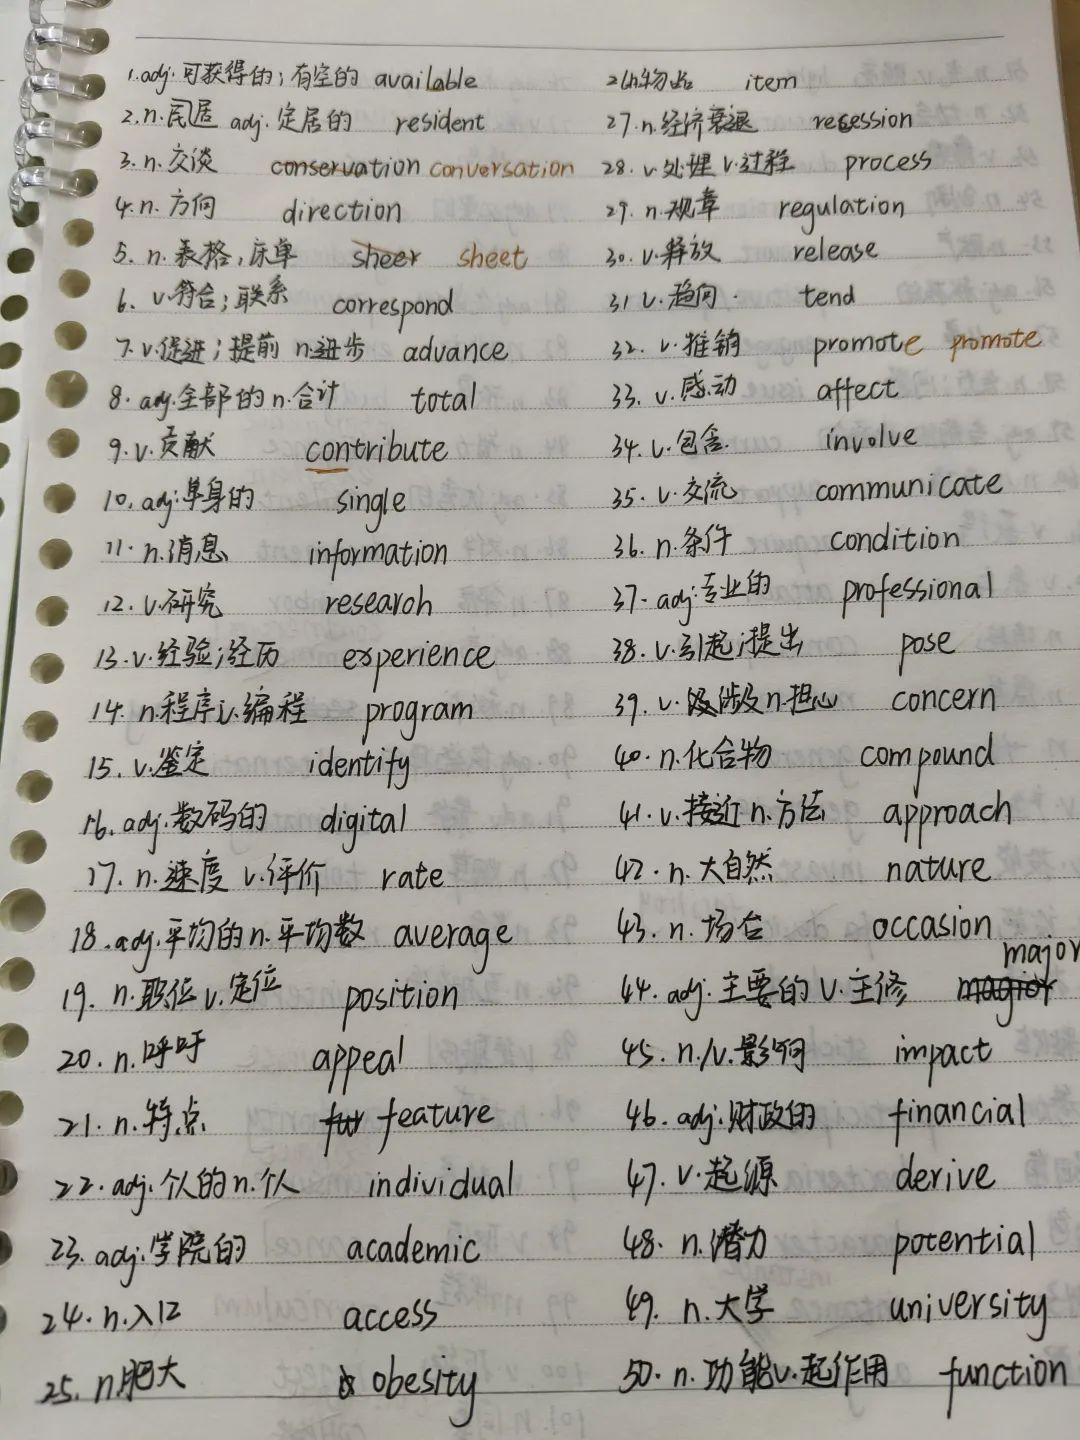 1. adj. 可获得的；有空的 available
2. n. 民居 adj. 定居的 resident
3. n. 交谈 conservation conversation
4. n. 方向 direction
5. n. 表格，床单 sheer sheet
6. v. 符合；联系 correspond
7. v. 促进；提前 n. 进步 advance
8. adj. 全部的 n. 合计 total
9. v. 贡献 contribute
10. adj. 单身的 single
11. n. 消息 information
12. v. 研究 research
13. v. 经验；经历 experience
14. n. 程序 v. 编程 program
15. v. 鉴定 identify
16. adj. 数码的 digital
17. n. 速度 v. 评价 rate
18. adj. 平均的 n. 平均数 average
19. n. 职位 v. 定位 position
20. n. 呼吁 appeal
21. n. 特点 fur feature
22. adj. 个人的 n. 个人 individual
23. adj. 学院的 academic
24. n. 入口 access
25. n. 肥大 obesity
26. n. 物品 item
27. n. 经济衰退 recession
28. v. 处理 v. 过程 process
29. n. 规章 regulation
30. v. 释放 release
31. v. 趋向 tend
32. v. 推销 promote promote
33. v. 感动 affect
34. v. 包含 involve
35. v. 交流 communicate
36. n. 条件 condition
37. adj. 专业的 professional
38. v. 引起；提出 pose
39. v. 涉及 n. 担心 concern
40. n. 化合物 compound
41. v. 接近 n. 方法 approach
42. n. 大自然 nature
43. n. 场合 occasion
44. adj. 主要的 v. 主修 magior major
45. n./v. 影响 impact
46. adj. 财政的 financial
47. v. 起源 derive
48. n. 潜力 potential
49. n. 大学 university
50. n. 功能 v. 起作用 function